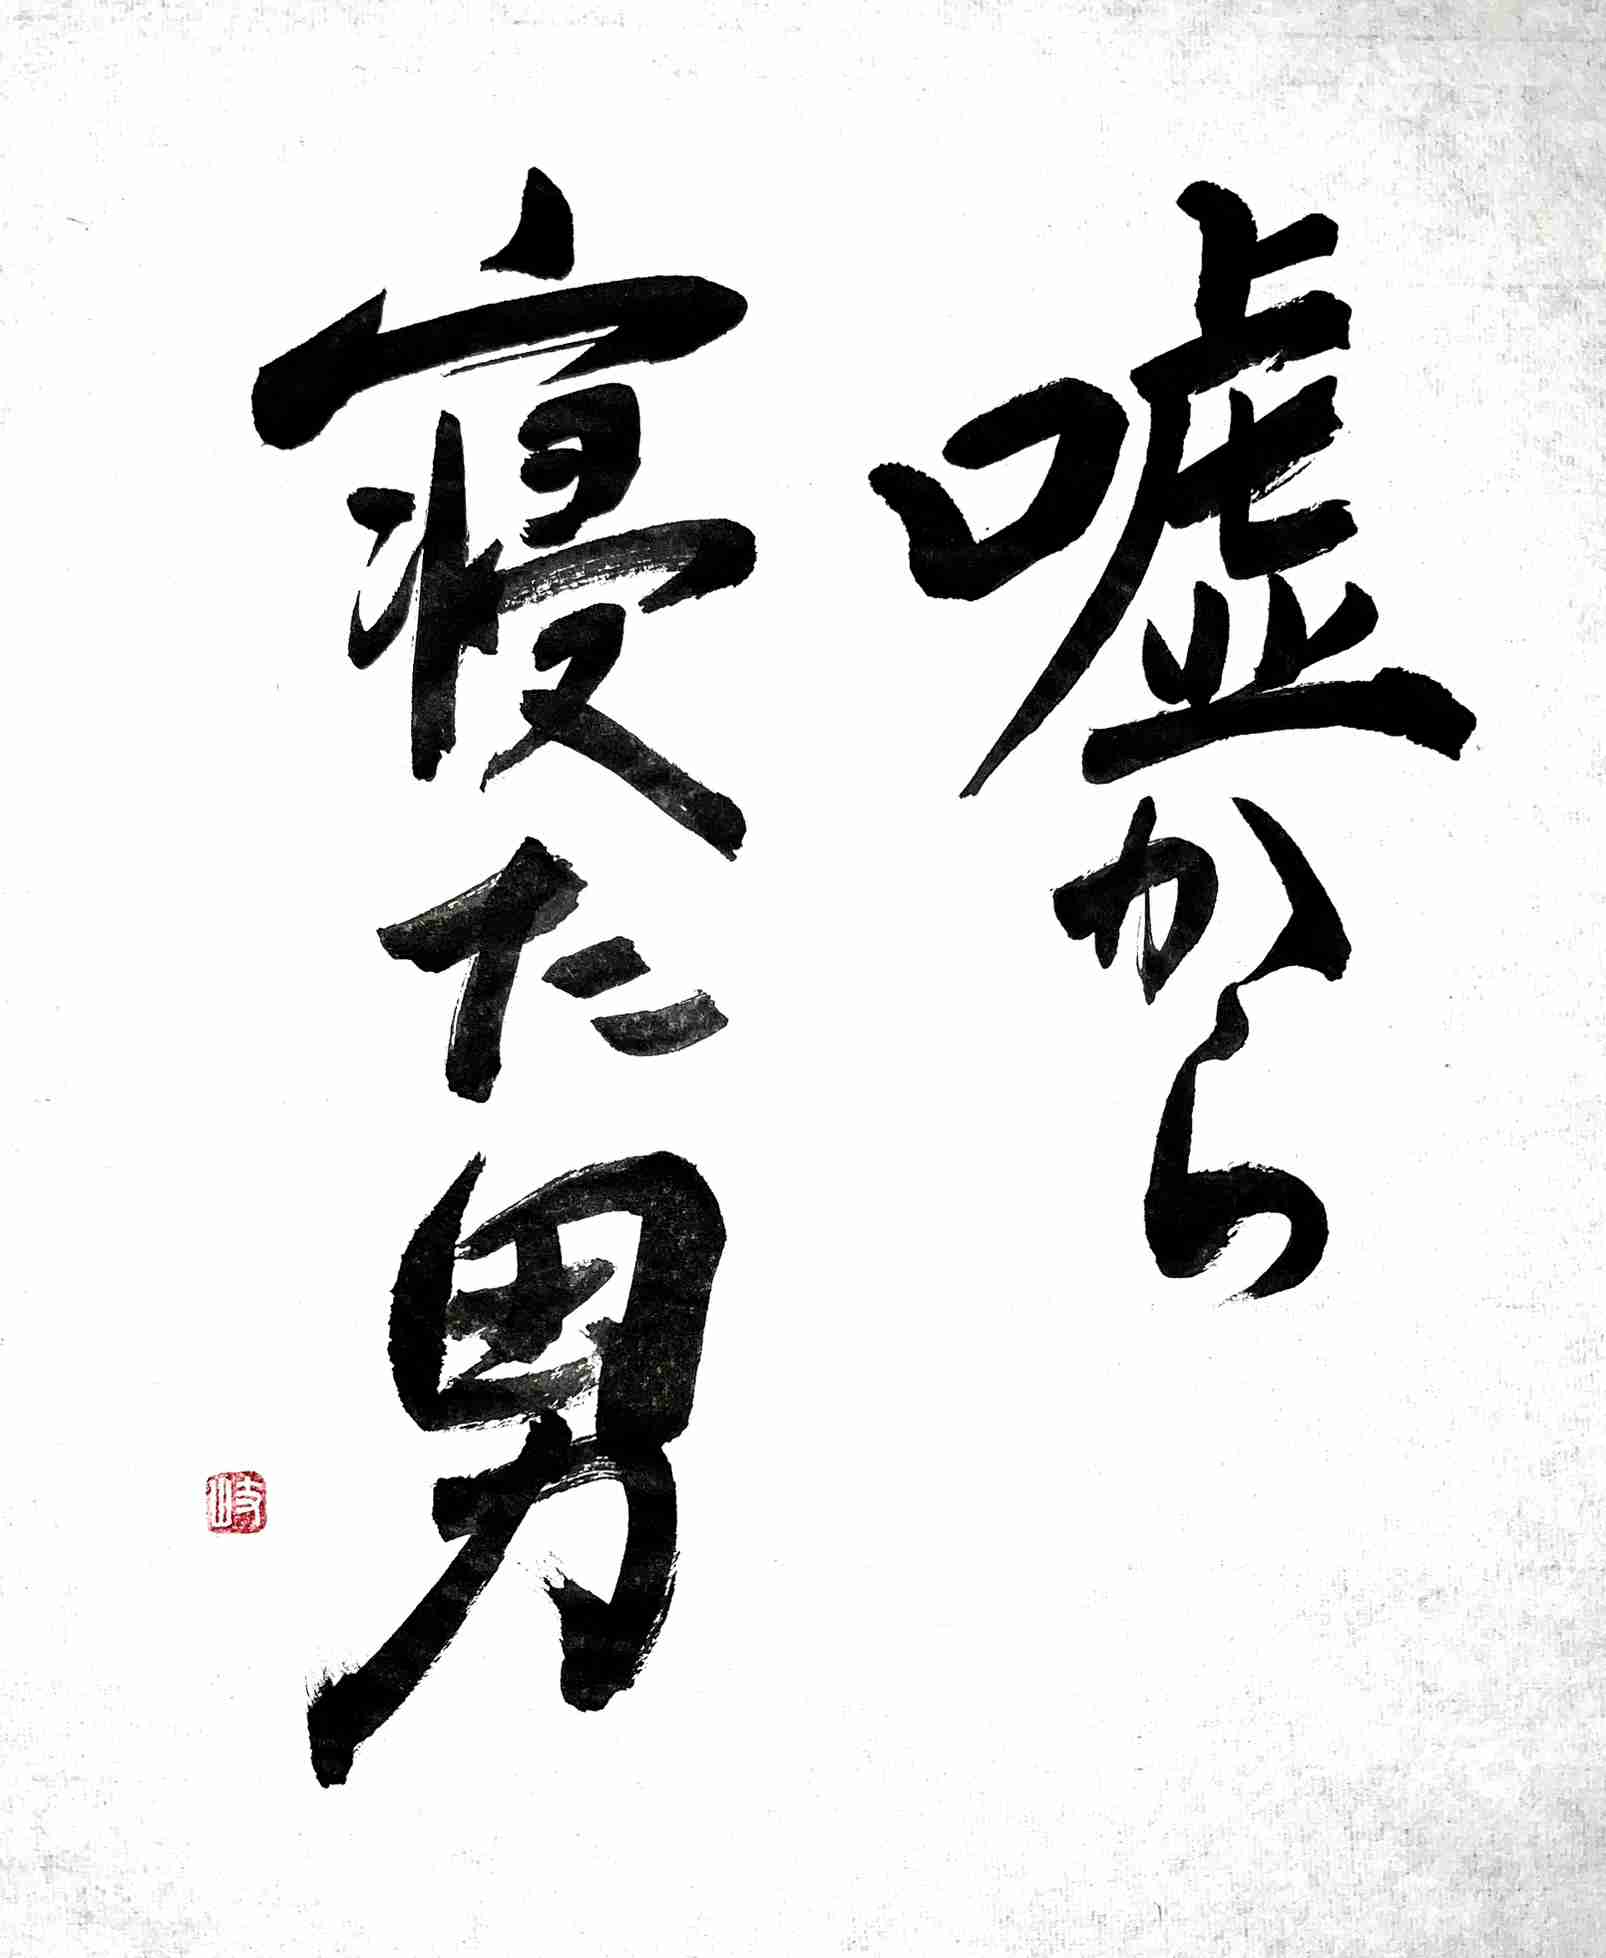 嘘から
寝た男
岐